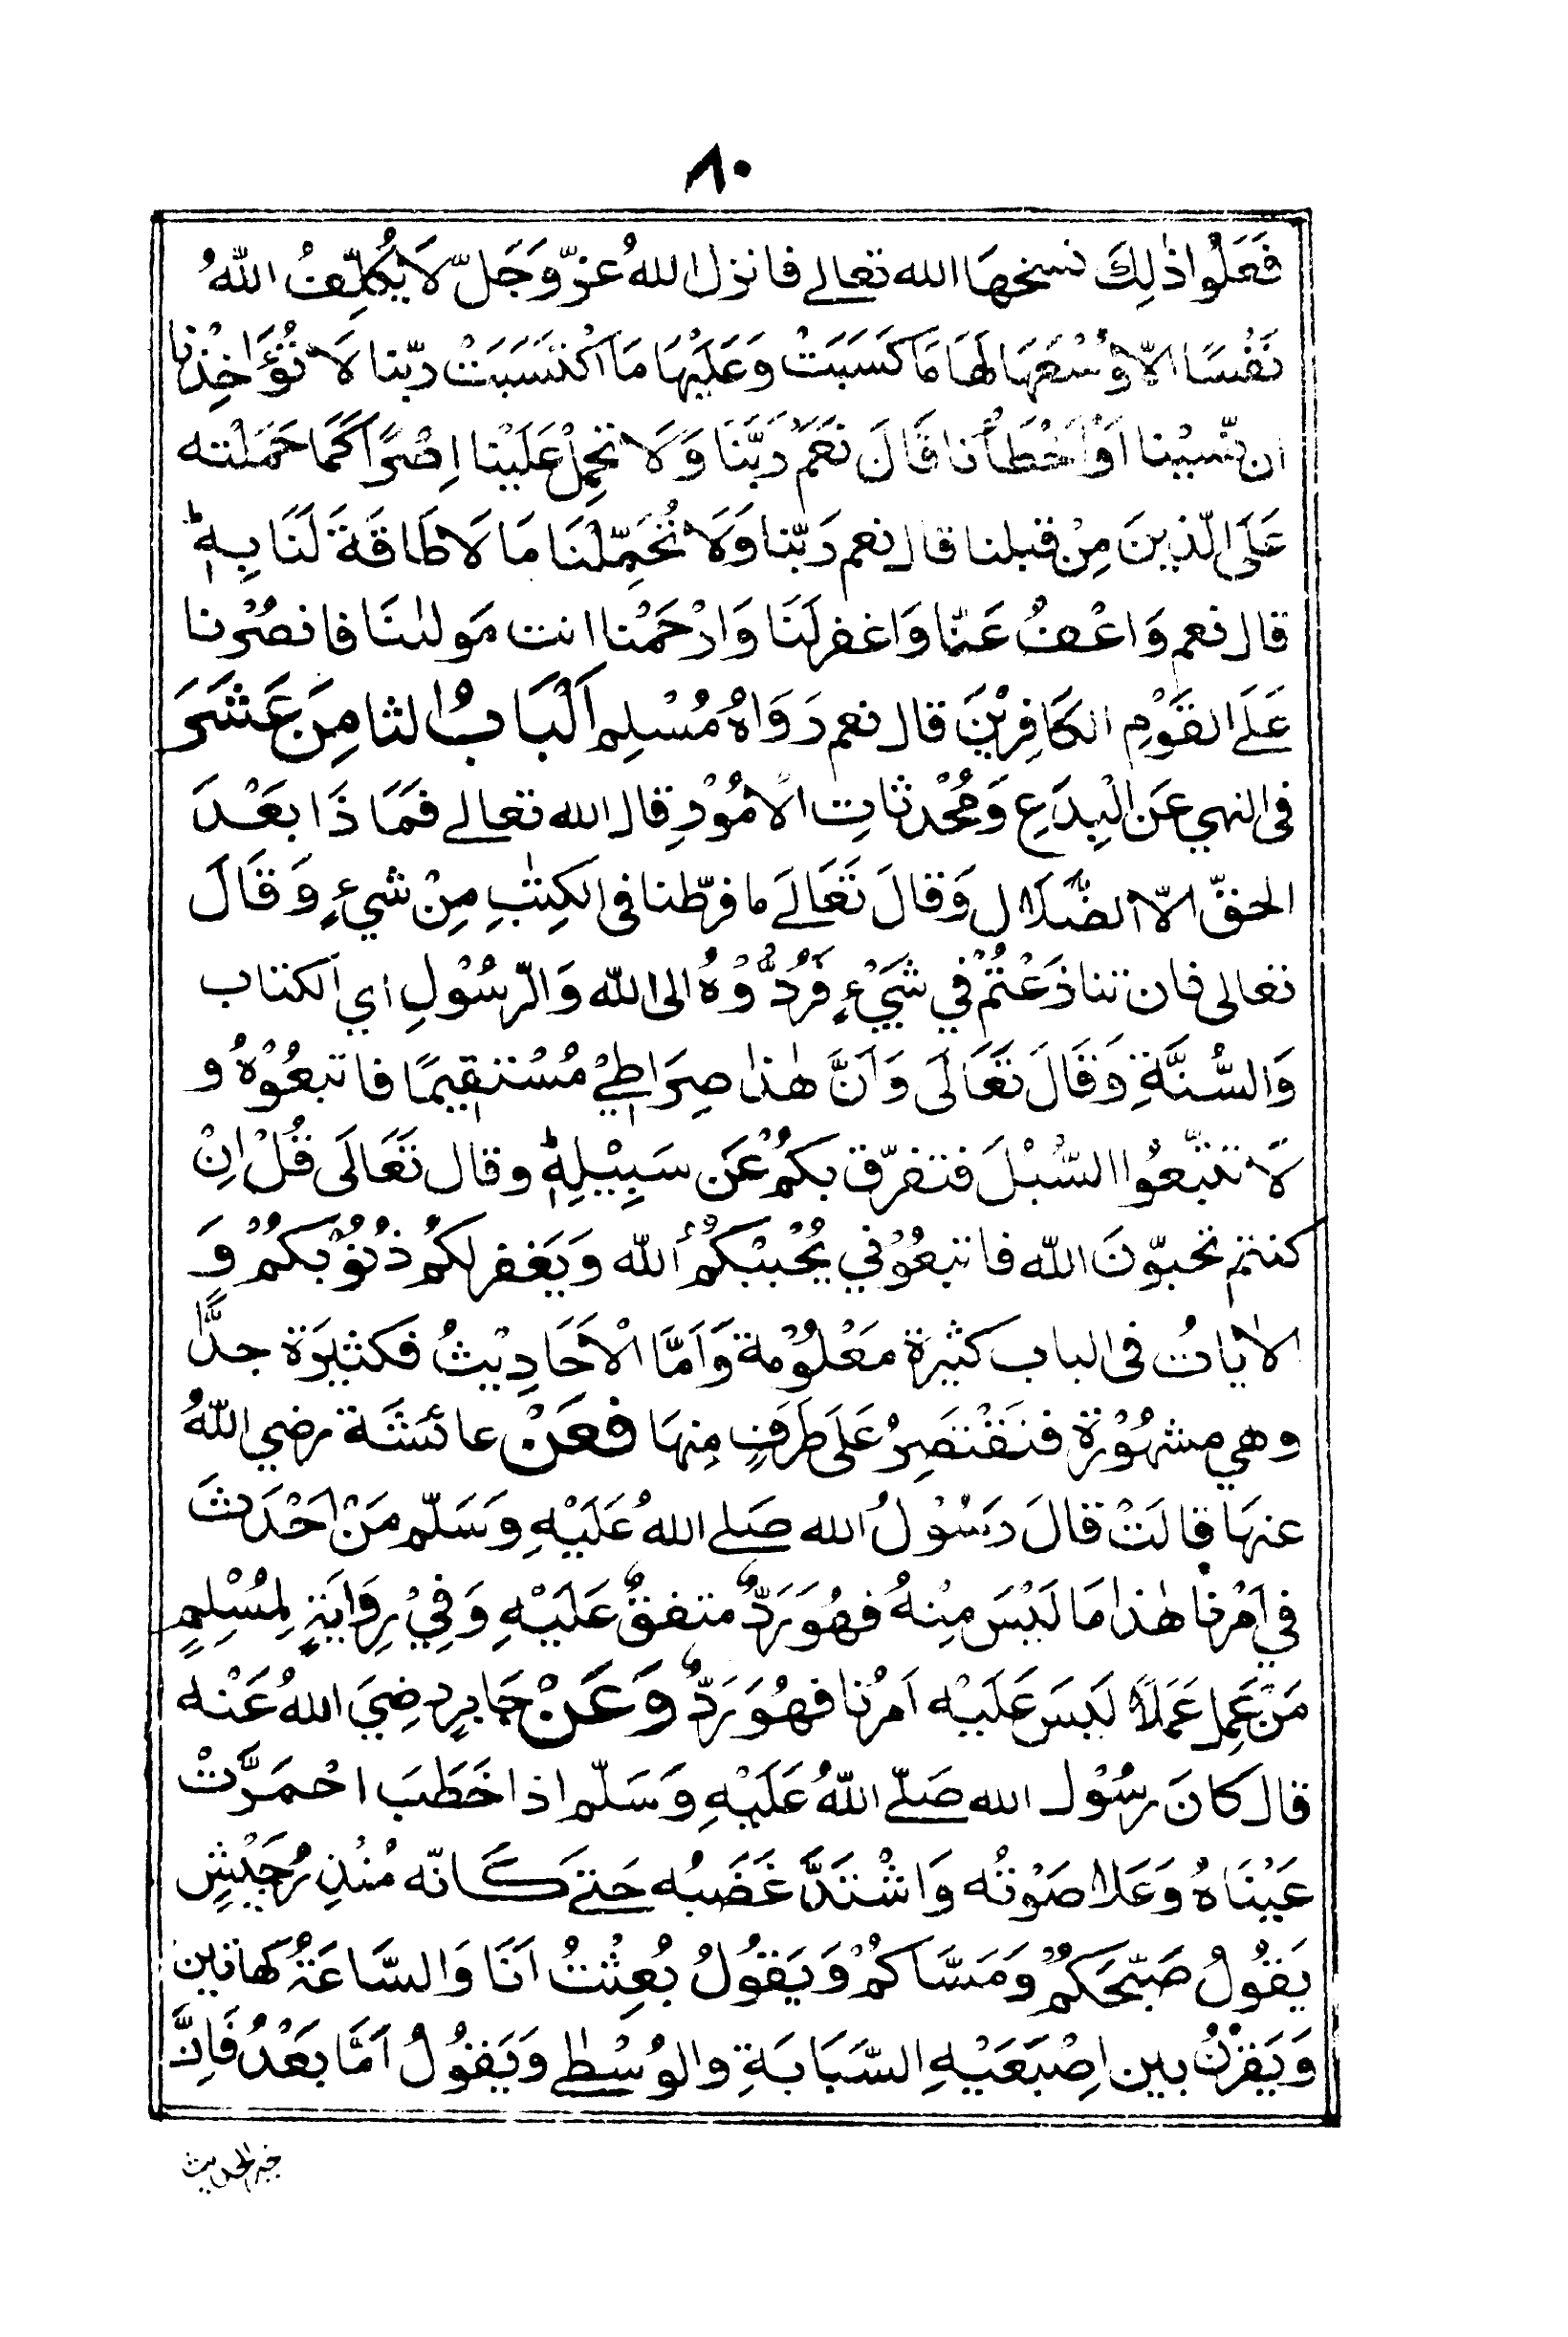 ٨٠
فَعَلُوا ذٰلِكَ نسخهَا الله تعالے فانزل اللهُ عزّ وَجَلّ لَا يُكَلِّفُ اللّٰهُ
نَفْسًا الّا وُسْعَهَا لَهَا مَا كَسَبَتْ وَعَلَيْهَا مَا اكْتَسَبَتْ ربّنا لَا تُؤَاخِذْنا
ان نّسِيْنا اَوْ اَخْطَأْنا قَالَ نَعَمْ رَبَّنَا وَلَا تَحْمِلْ عَلَيْنا اِصْرًا كَمَا حَمَلْته
عَلَى الّذينَ مِنْ قبلنا قال نعم رَبّنا وَلَا تُحَمِّلْنَا مَا لَا طَاقَةَ لَنَا بِهٖ
قال نعم وَاعْفُ عَنّا وَاغفرلَنَا وَارْحَمْنا انت مَولٰىنَا فانصُرْنا
عَلَے القَوْمِ الكَافِرِيْنَ قال نعم رَوَاهُ مُسْلِم اَلْبَابُ الثامِنَ عَشَرَ
فى النهي عَن الْبِدَعِ وَمُحْدثاتِ الْامُوْرِ قال الله تعالے فَمَا ذَا بعْدَ
الحقّ الّا الضَّلَال وَقالَ تَعَالَے ما فرّطنا فى الكِتٰبِ مِنْ شيءٍ وَ قَالَ
تعالى فان تنازَعْتُمْ في شَيْءٍ فَرُدُّوْهُ الى الله وَالرّسُوْلِ اي الكتاب
وَالسُّنَّةِ وَقَالَ تَعَالَى وَاَنَّ هٰذا صِرَاطِيْ مُسْتَقِيمًا فاتبعُوْهُ و
لَا تتّبعُوا السُّبُلَ فتفرّق بكمْ عَن سَبِيْلِهٖ وقال تَعَالَى قُلْ اِنْ
كنتم تحبّونَ الله فاتبعُوْني يُحْبِبْكُمُ الله وَيَغفرلكُم ذُنُوْبكُمْ وَ
الاٰياتُ فى الباب كثيرة معْلُوْمة وَاَمَّا الْاَحَادِيْثُ فكثيرَة جدًّا
وهي مشهُوْرة فنَقْتَصِرُ عَلَى طَرَفٍ مِنهَا فعَنْ عائشَة رضي اللهُ
عنهَا قالَتْ قالَ رَسُوْلُ الله صَلے اللهُ عَلَيْهِ وَسَلّم مَنْ اَحْدَثَ
في اَمْرنا هٰذا مَا لَيْسَ مِنْهُ فهُوَ رَدٌّ متفقٌ عَلَيْهِ وَفِيْ رِوَايَةٍ لِمُسْلِمٍ
مَنْ عَمِلَ عَمَلًا لَيسَ عَلَيْه اَمْرُنا فهُوَ رَدٌّ وَعَنْ جَابرٍ رضِيَ اللهُ عَنْه
قال كانَ رسُوْل الله صَلّے اللّٰهُ عَلَيْهِ وَسَلّم اذا خَطَبَ احْمَرَّتْ
عَيْنَاهُ وَعَلَا صَوْتُه وَاشْتَدَّ غَضَبُه حَتےّ كَانّه مُنْذِرُ جَيْشٍ
يَقُولُ صَبّحَكُمْ وَمَسَّاكُمْ وَيَقُولُ بُعِثْتُ اَنَا وَالسَّاعَةُ كهاتين
وَيَقرُنُ بين اِصْبَعَيْهِ السَّبَابَةِ والوُسْطٰے وَيَقُولُ اَمَّا بَعْدُ فَاِنَّ
خير الحديث